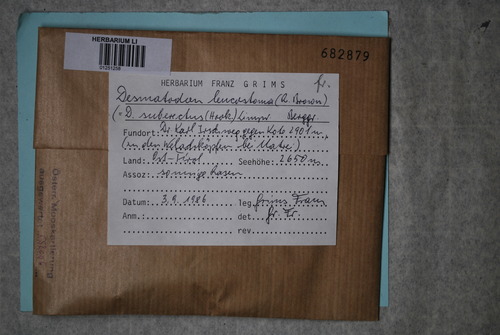 HERBARIUM LI
682879
HERBARIUM FRANZ GRIMS
fr.
Desmatodon leucostoma (R. Brown)
Berggr.
(= D. suberectus (Hook) Limpr.
Fundort: Dr. Karl gegen Kote 2901 m,
(in den bei Matrei)
Land: Ost-Tirol Seehöhe: 2650 m
Assoz: sonnige Rasen
Datum: 3.9.1986 leg. Grims Franz
Anm.: det Gr. Fr.
rev.